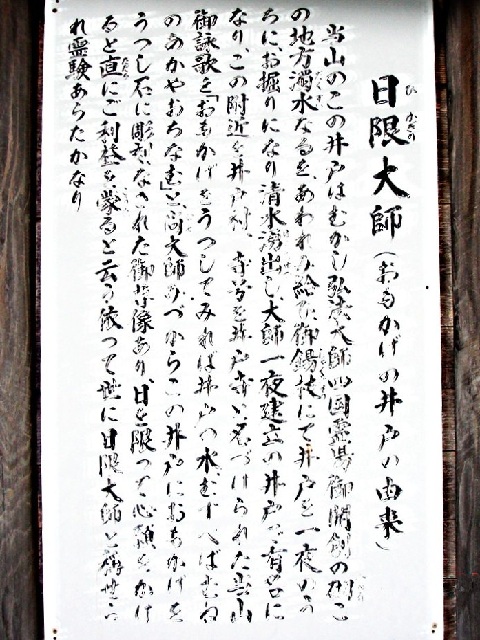 日限大師（おもかげの井戸の由来）
当山のこの井戸はむかし弘法大師四国霊場御開創の砌こ
の地方濁水なるを、あわれみ給ひ御錫杖にて井戸を一夜のう
ちにお掘りになり清水湧出し、大師一夜建立の井戸の有名に
なり、この附近を井戸村、寺号を井戸寺と名づけられた当山
御詠歌を「おもかげをうつしてみれば井戸の水むすべばむね
のあかやおちなむ」と、尚大師みづからこの井戸におもかげを
うつし石に彫刻なされた御尊像あり、日を限って心願をかけ
ると直にご利益を蒙ると云う依って世に日限大師と称せら
れ霊験あらたかなり